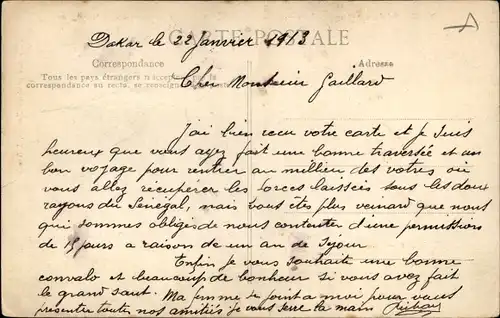 Dakar le 22 Janvier 1913
CARTE POSTALE
Correspondance
Adresse
Tous les pays étrangers n'acceptent pas la
correspondance au recto, se renseigner
Cher Monsieur Gaillard
J'ai bien recu votre carte et je suis
heureux que vous ayez fait une bonne traversée et un
bon voyage pour rentrer au millieu des votres où
vous allez recuperer les forces laissées sous les doux
rayons du Sénégal, mais vous êtes plus veinard que nous
qui sommes obligés de nous contenter d'une permission
de 15 jours a raison de un an de séjour.
Enfin je vous souhaite une bonne
convalo et beaucoup de bonheur si vous avez fait
le grand saut. Ma femme se joint a moi pour vous
présenter toute nos amitiés je vous serre la main